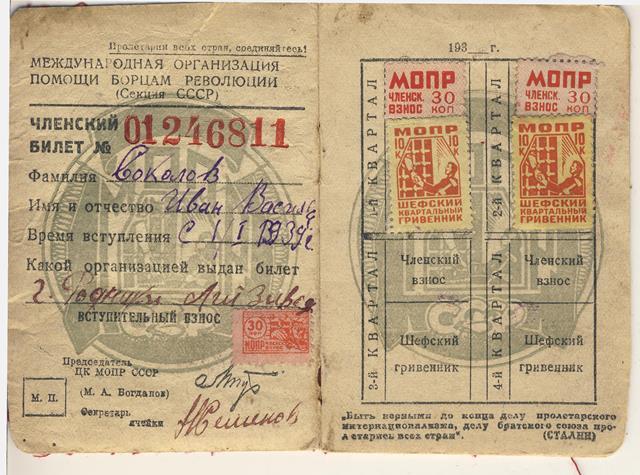 Пролетарии всех стран, соединяйтесь!
МЕЖДУНАРОДНАЯ ОРГАНИЗАЦИЯ
ПОМОЩИ БОРЦАМ РЕВОЛЮЦИИ
(Секция СССР)
ЧЛЕНСКИЙ
БИЛЕТ № 01246811
Фамилия Соколов
Имя и отчество Иван
Время вступления с 1 I 1939 г.
Какой организацией выдан билет
г. Родники
ВСТУПИТЕЛЬНЫЙ ВЗНОС
30 коп
МОПР ЧЛЕНСК. ВЗНОС
Председатель
ЦК МОПР СССР
(М. А. Богданов)
М. П.
Секретарь
ячейки
193 г.
1-й КВАРТАЛ
МОПР
ЧЛЕНСК. 30
ВЗНОС КОП
МОПР
10 К 10 К
ШЕФСКИЙ
КВАРТАЛЬНЫЙ
ГРИВЕННИК
2-й КВАРТАЛ
МОПР
ЧЛЕНСК. 30
ВЗНОС КОП
МОПР
10 К 10 К
ШЕФСКИЙ
КВАРТАЛЬНЫЙ
ГРИВЕННИК
3-й КВАРТАЛ
Членский
взнос
Шефский
гривенник
4-й КВАРТАЛ
Членский
взнос
Шефский
гривенник
„Быть верными до конца делу пролетарского
интернационализма, делу братского союза про-
летариев всех стран".
(СТАЛИН)